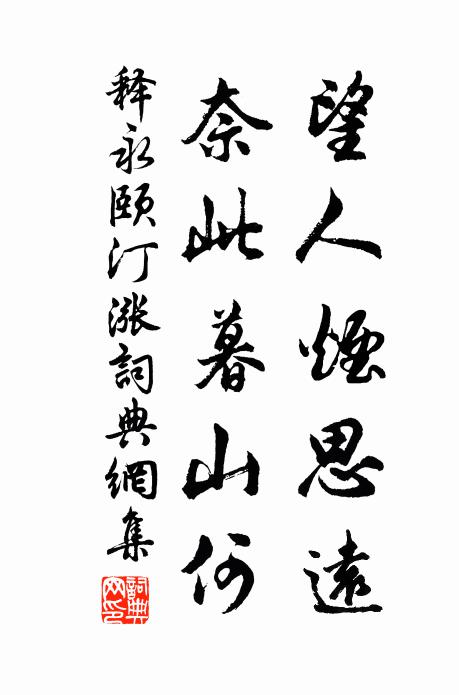 望人煙思遠
奈此暮山何
释永頤汀漲詞典網集
詞典網印